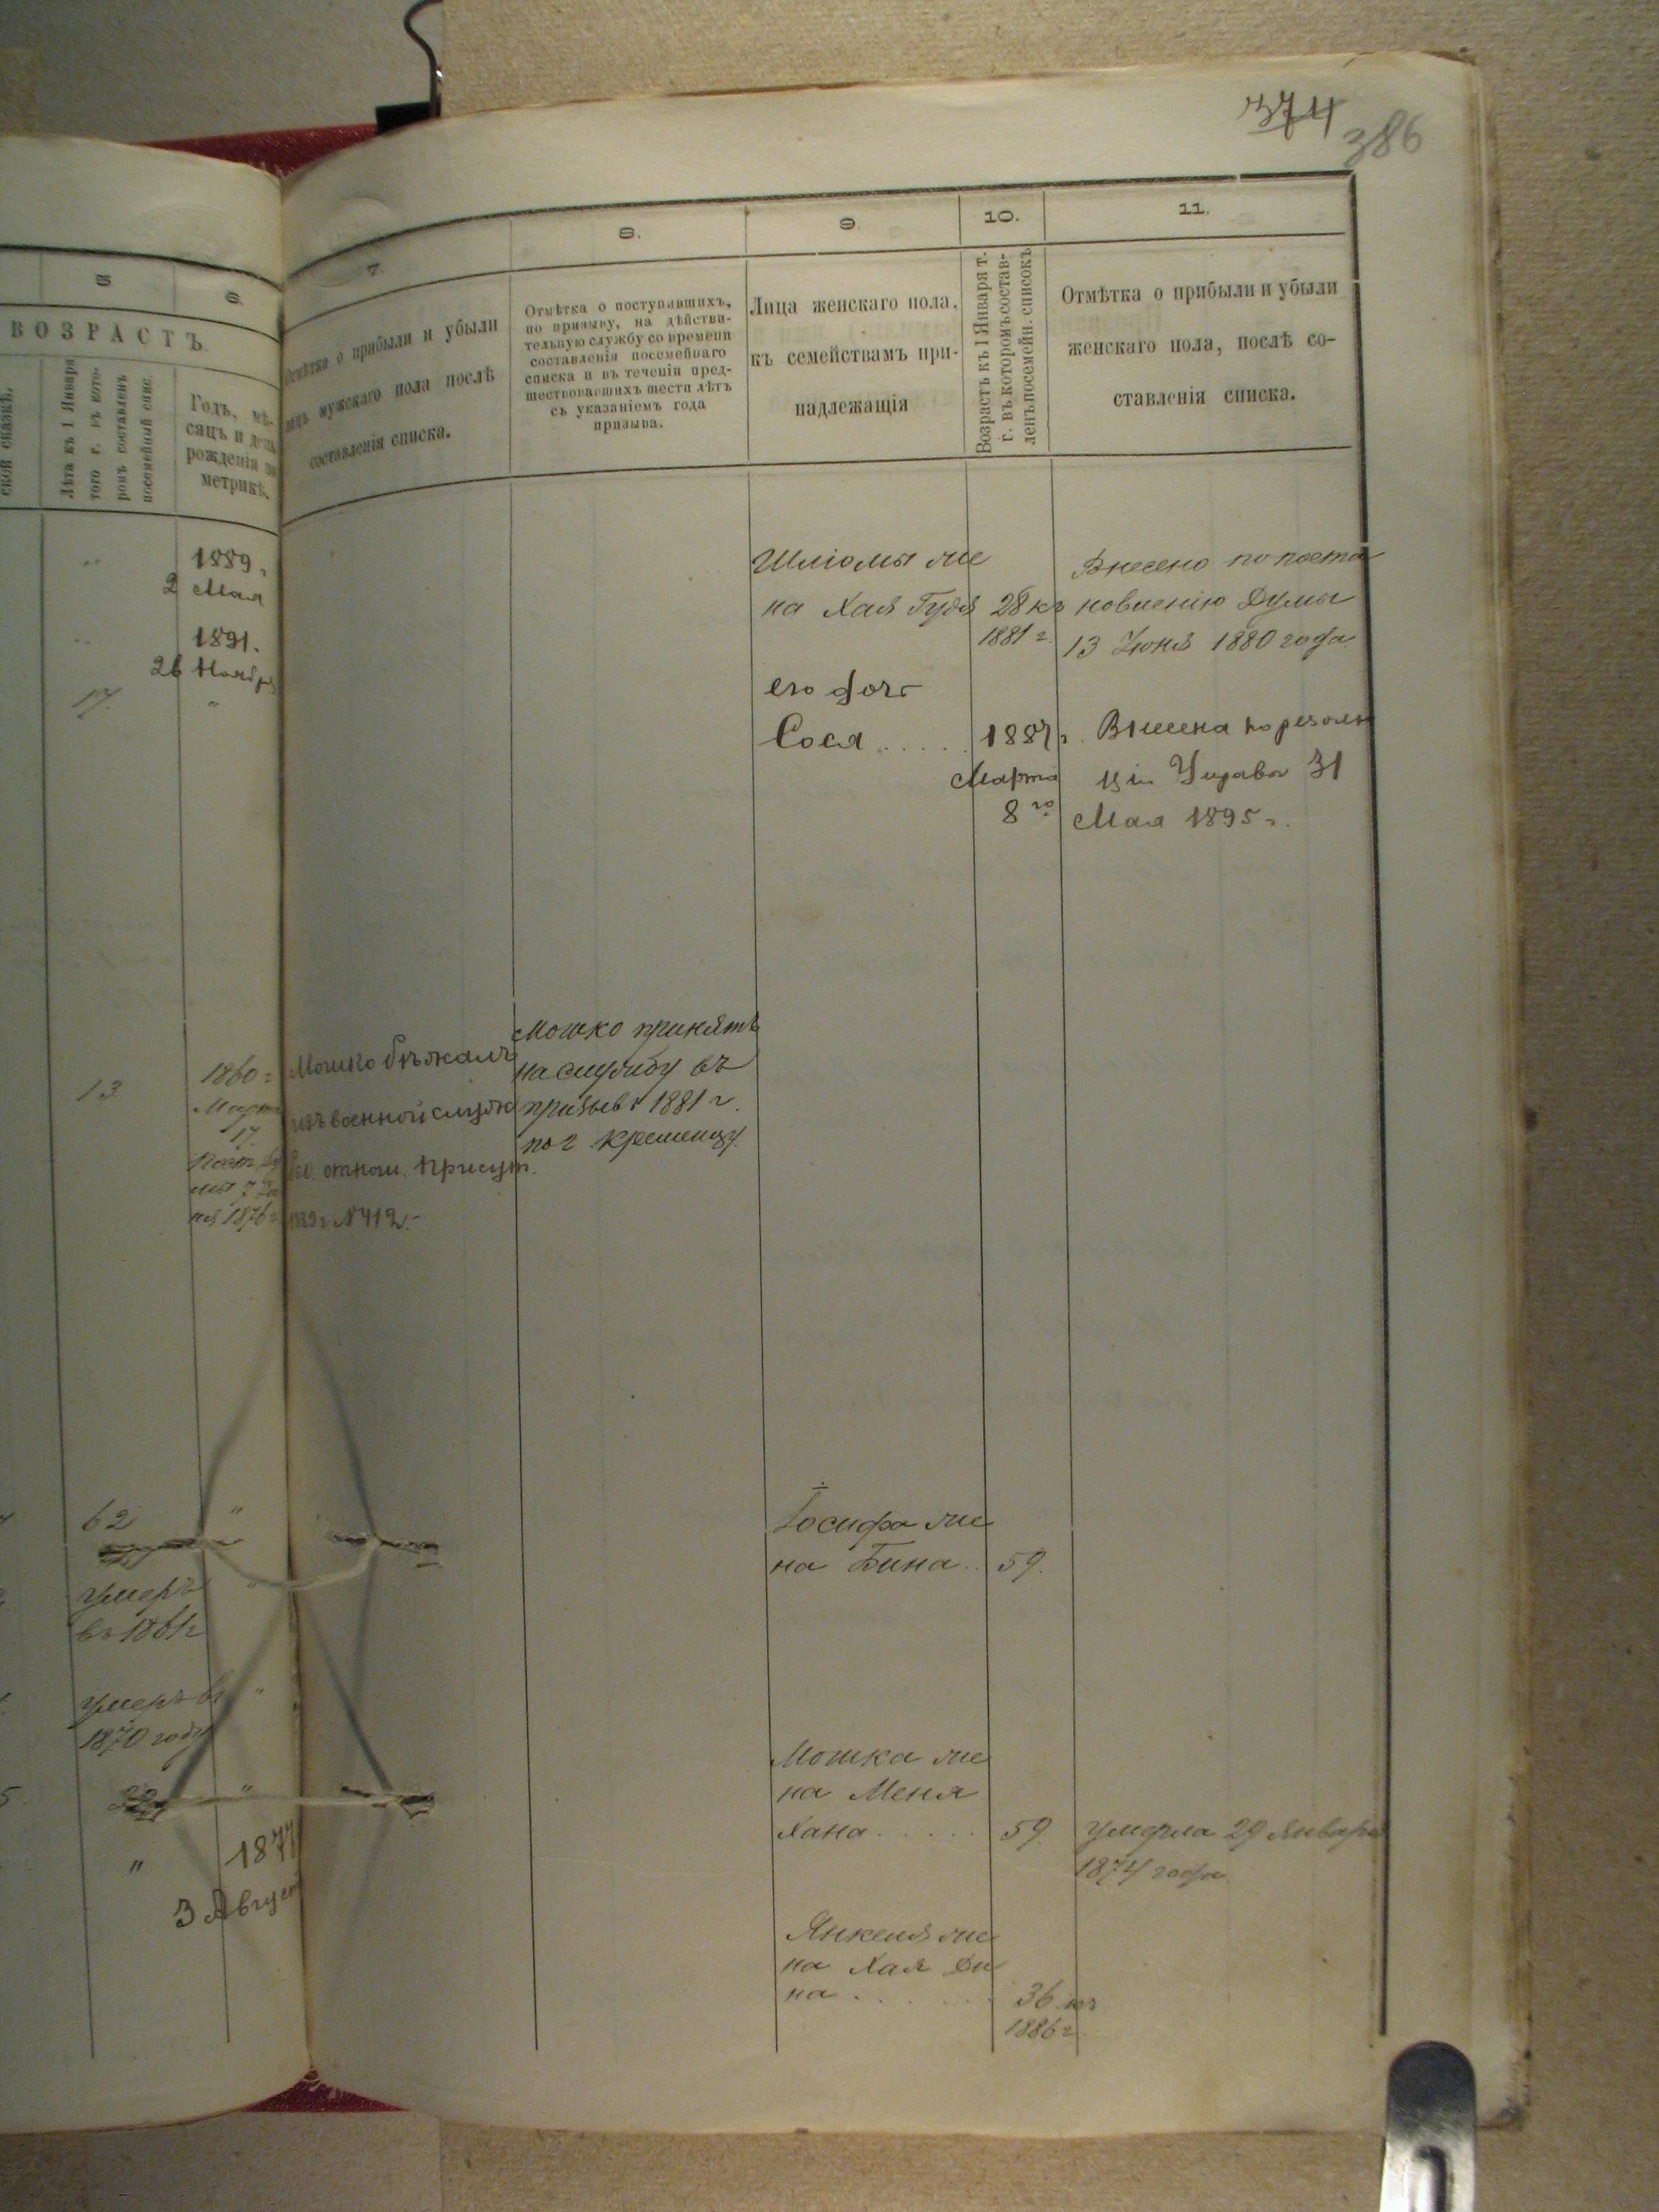 374
386
5
6.
7.
8.
9
10.
11.
ВОЗРАСТЪ.
ской сказкѣ.
Лѣта къ 1 Января
того г. въ кото-
ромъ составленъ
посемейный спис.
Годъ, мѣ-
сяцъ и день
рожденія по
метрикѣ.
Отмѣтка о прибыли и убыли
лицъ мужскаго пола послѣ
составленія списка.
Отмѣтка о поступившихъ,
по призыву, на дѣйстви-
тельную службу со времени
составленія посемейнаго
списка и въ теченіи пред-
шествовавшихъ шести лѣтъ
съ указаніемъ года
призыва.
Лица женскаго пола,
къ семействамъ при-
надлежащія
Возрастъ къ 1 Января т.
г. въ которомъ состав-
ленъ посемейн. списокъ
Отмѣтка о прибыли и убыли
женскаго пола, послѣ со-
ставленія списка.
1889.
2 Мая
1891.
26 Ноября
17.
Шліомы же
на Хая Гудя 28 къ
1881 г.
Внесено по поста
новленію Думы
13 Іюня 1880 года
его дочь
Сося . . . . . 1887 г.
Марта
8 го
Внесена по резолю
ціи Управы 31
Мая 1895 г.
13
1860 г
Март
17.
Пост. Ду
мы 7 Iю
ня 1876 г
Мошко бѣжалъ
изъ военной служ
отнош. Присут.
№ 412.-
Мошко принятъ
на службу въ
призывъ 1881 г.
по г. Кременцу.
62
умеръ
въ 1861 г
умеръ въ
1870 году
1877
3 Август
Іосифа же
на Бина .. 59.
Мошка же
на Меня
Хана . . . . . 59
умерла 29 Января
1874 года
Янкеля же
на Хая Ди
на . . . . . . 36 къ
1886 г.